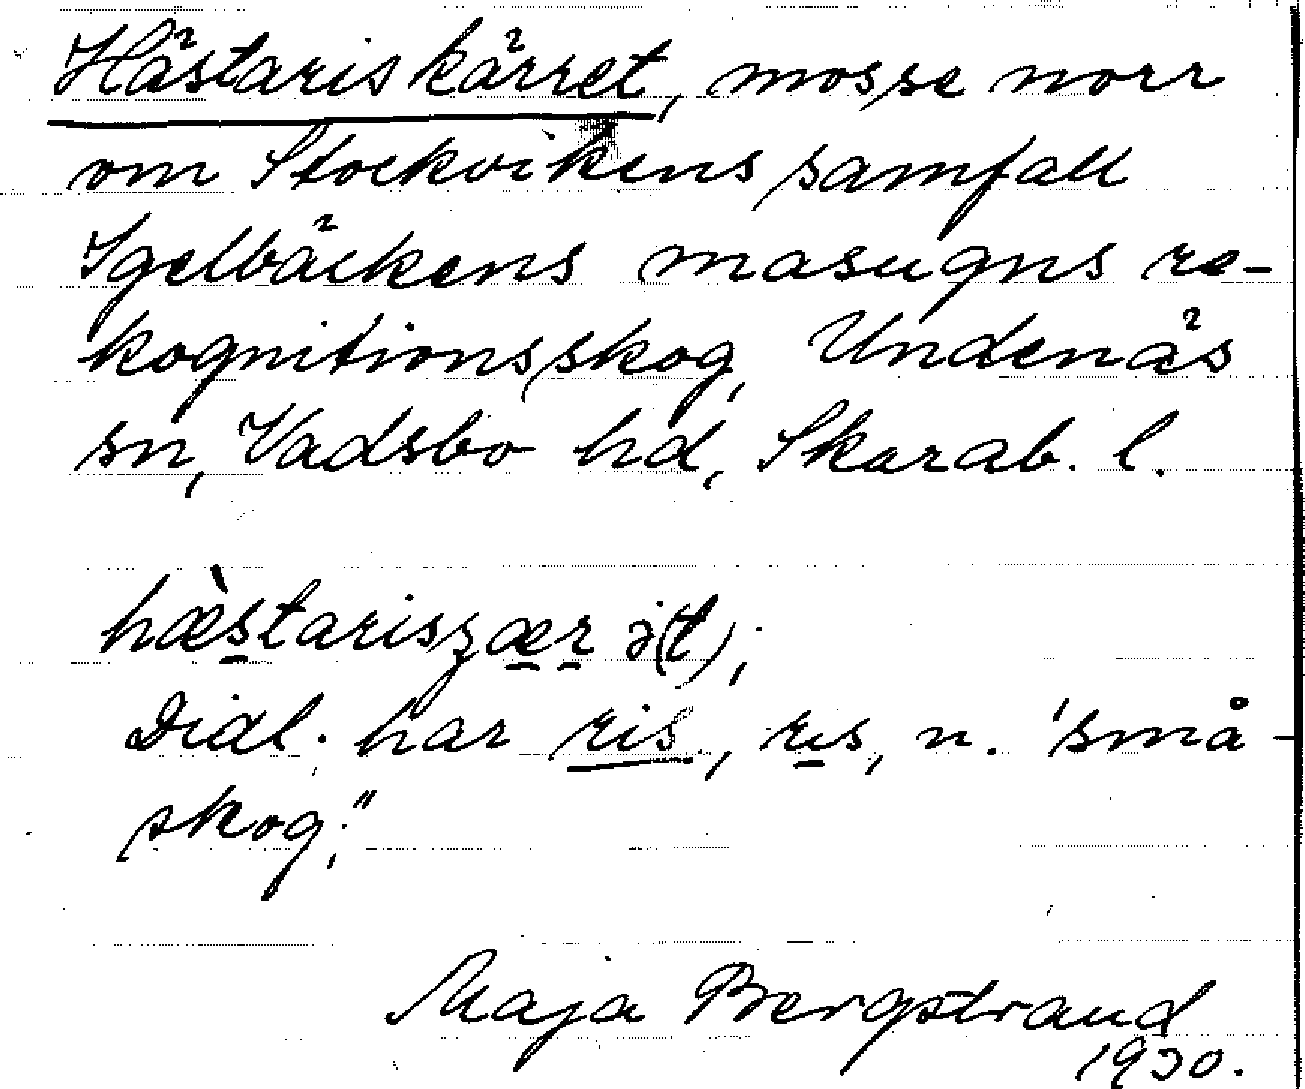 Hästariskärret, mosse norr
om Stockvikens samfall
Igelbäckens masugns re-
kognitionsskog, Undenäs
sn, Vadsbo hd, Skarab. l.
hæ̀starisʒær ə(t);
Dial. har ris, rıs, n. 'små-
skog;"
Maja Bergstrand
1930.